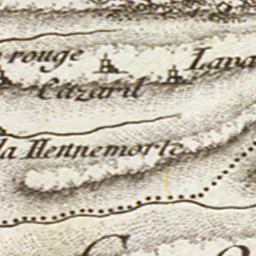 rouge
Cazaril
la Hennemorte